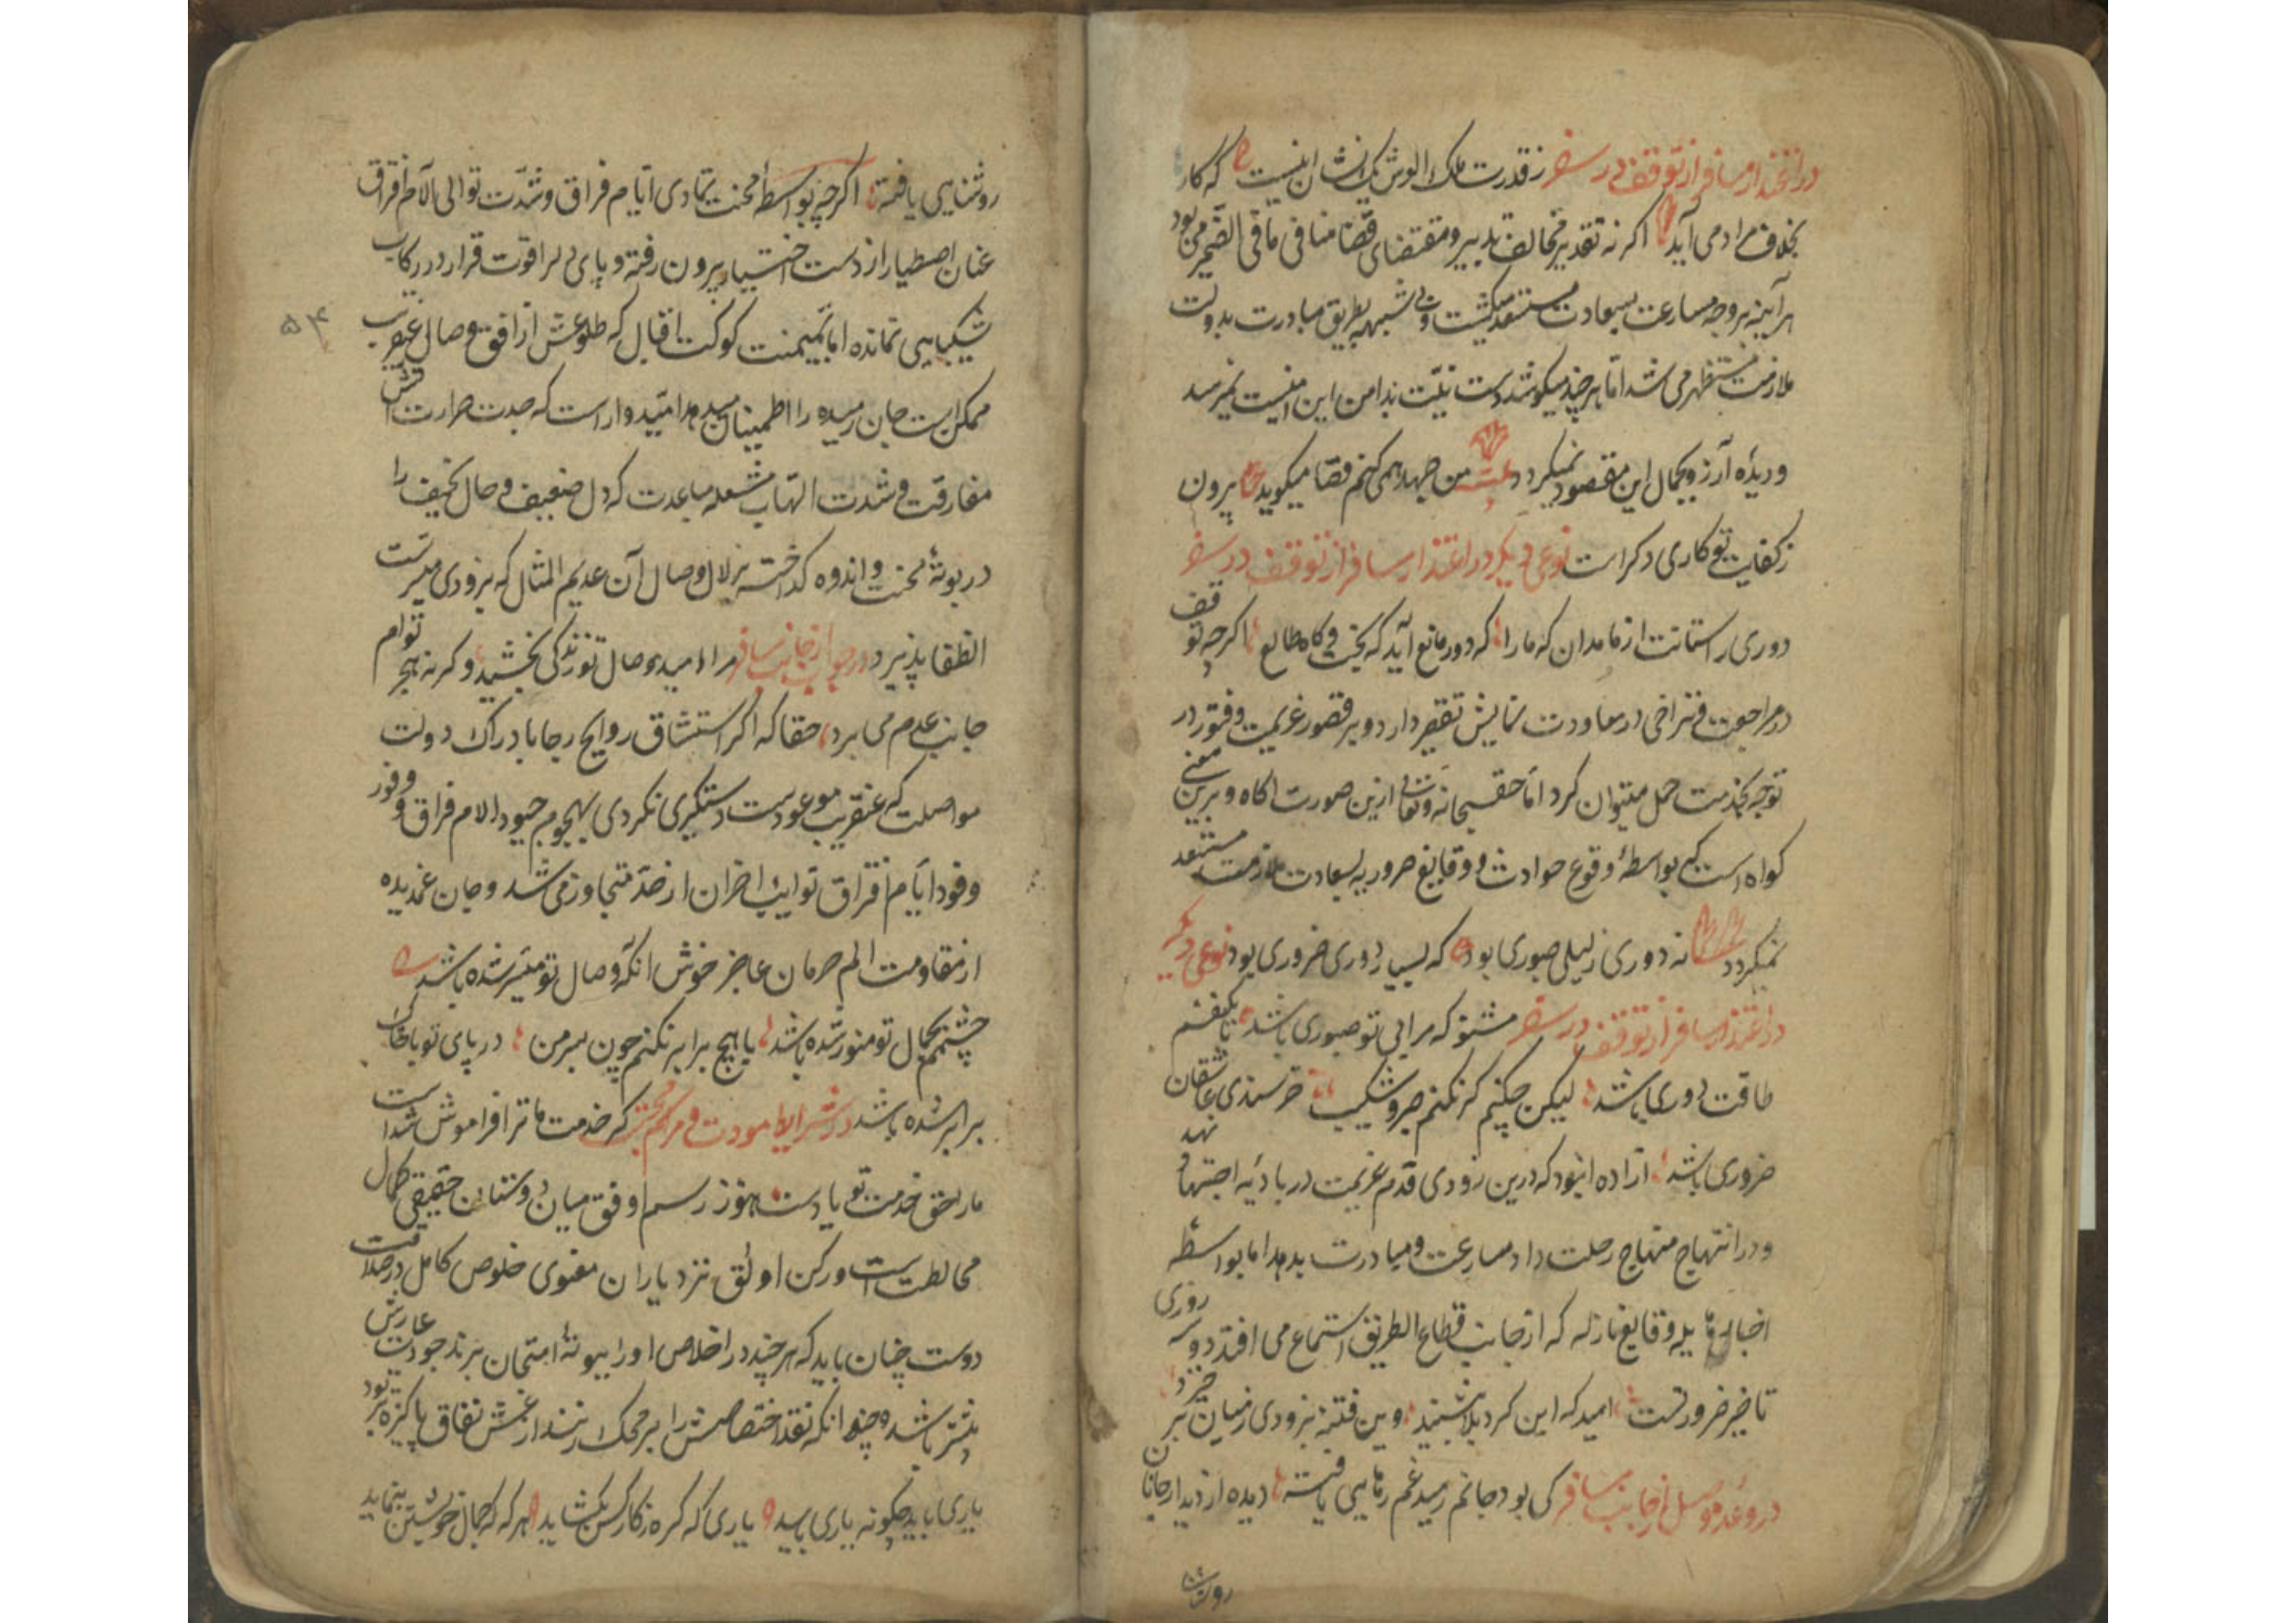 در اعتذار مسافر از توقف در سفر ز قدرت ملک الوش یک نشان اینست که کار
بخلاف مراد می آید اگر نه تقدیر مخالف تدبیر و مقتضای قضا منافی مافی الضمیر می بود
هر آینه بر وجه مسارعت بسعادت مستسعد میگشت و بی شبهه بطریق مبادرت بدولت
ملازمت مستظهر می شد اما هر چند میکوشد دست نیت بدامن این امنیت نمیرسد
و دیده آرزو بجمال این مقصود نمیگردد من جهد همی کنم قضا میگوید بیرون
ز کفایت تو کاری دگر است نوعی دیگر در اعتذار مسافر از توقف در سفر
دوری راستانت از ما مدان که ما را که دور مانع آید که بخت و کاه طالع اگرچه توقف
در مراجعت و تراخی در معاودت نمایش تقصیر دارد و بر قصور عزیمت و فتور در
توجه بخدمت حمل میتوان کرد اما حق سبحانه و تعالی ازین صورت آگاه و برین معنی
گواه است که بواسطه وقوع حوادث و وقایع ضروریه بسعادت ملازمت مستسعد
نمیگردد نه دوری ز لیلی صبوری بود که بسیار دوری ضروری بود نوعی دیگر
در اعتذار مسافر از توقف در سفر مشنو که مرا بی تو صبوری باشد یا یکنفسم
طاقت دوری باشد لیکن چکنم گر نکنم صبر و شکیب خرسندی عاشقان
ضروری باشد اراده این بود که درین زودی قدم عزیمت در بادیه اجتهاد نهد
و در انتهاج منهاج رحلت داد مسارعت و مبادرت بدهد اما بواسطه
اخبار وقایع نازله که از جانب قطاع الطریق استماع می افتد دو سه روزی
تاخیر ضرورتست امید که این گرد بلا بنشیند وین فتنه بزودی ز میان برخیزد
در وعده وصل از جانب مسافر کی بود جانم رسید غم رهایی یافته دیده از دیدار جانان
روشنایی یافته اگرچه بواسطه محنت تمادی ایام فراق و شدت توالی آلام افتراق
عنان اصطبار از دست اختیار بیرون رفته و پای دل را قوت قرار در رکاب
شکیبایی نمانده اما بمیمنت کوکب اقبال که طلوعش از افق وصال عنقریب
ممکن است جان رمیده را اطمینان میدهد امیدوار است که حدت حرارت آتش
مفارقت و شدت التهاب مشعله مباعدت که دل ضعیف و حال نحیف را
در بوته محنت و اندوه گداخته بزلال وصال آن عدیم المثال که بزودی میسرست
انطفا پذیرد در جواب از جانب مسافر مرا امید وصال تو زندگی بخشید وگرنه هجر توام
جانب عدم می برد حقا که اگر استنشاق روایح رجا بادراک دولت
مواصلت که عنقریب موعودست دستگیری نکردی بهجوم جنود آلام فراق و وفور
وفود ایام افتراق نوایب احزان از حد متجاوز می شد و جان غمدیده
از مقاومت الم حرمان عاجز خوش آنکه وصال تو میسر شده باشد
چشمم بجمال تو منور شده باشد با هیچ برابر نکنم چون سر من در پای تو با خاک
برابر شده باشد در شرایط مودت و مراسم محبت گر خدمت ما ترا فراموش شداست
ما را حق خدمت تو یادست هنوز رسم اوفق میان دوستان حقیقی کمال
مخالطت است و رکن اوثق نزد یاران معنوی خلوص کامل در صداقت
دوست چنان باید که هر چند در اخلاص او را ببوته امتحان برند جودت عیارش
بیشتر باشد و چندانکه نقد اختصاصش را بر محک زنند از غش نفاق پاکیزه تر بود
یاری باید چگونه یاری باید یاری که گره ز کار کس بگشاید هر گه که جمال خویشتن بنماید